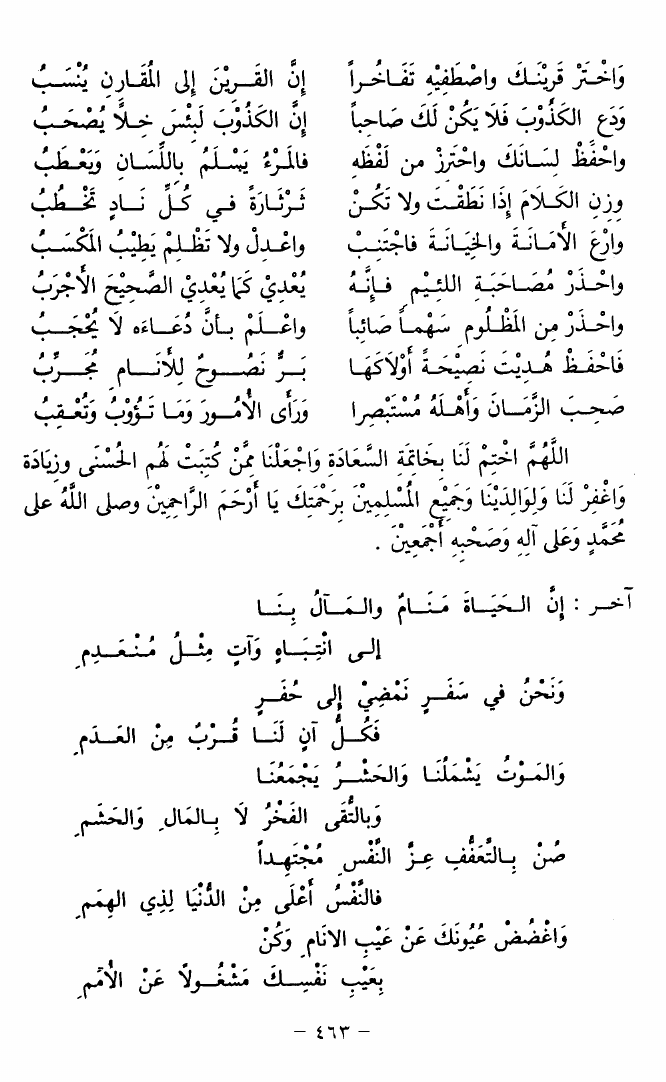 وَاخْتَرْ قَرِيْنَكَ واصْطَفيْهِ تَفَاخُراً إِنَّ القَرِيْنَ إِلى المُقَارِنِ يُنْسَبُ
وَدَعِ الكَذُوْبَ فَلَا يَكُنْ لَكَ صَاحِباً إِنَّ الكَذُوْبَ لَبِئْسَ خِلاًّ يُصْحَبُ
واحْفَظْ لِسَانَكَ واحْتَرِزْ من لَفْظِهِ فالمَرْءُ يَسْلَمُ بِاللِّسَانِ وَيَعْطَبُ
وزِنِ الكَلَامَ إِذَا نَطَقْتَ ولا تَكُنْ ثَرْثَارَةً في كُلِّ نَادٍ تَخْطُبُ
وارْعَ الأَمَانَةَ والخِيَانَةَ فاجْتَنِبْ واعْدِلْ ولا تَظْلِمْ يَطِيْبُ المَكْسَبُ
واحْذَرْ مُصَاحَبَةِ اللئِيْمِ فإِنَّهُ يُعْدِيْ كَمَا يُعْدِيْ الصَّحِيْحَ الأَجْرَبُ
واحْذَرْ مِن المَظْلُومِ سَهْماً صَائِباً واعْلَمْ بأَنَّ دُعَاءَه لَا يُحْجَبُ
فَاحْفَظْ هُدِيْتَ نَصِيْحَةً أَوْلَاكَهَا بَرٌّ نَصُوحٌ لِلأَنَامِ مُجَرِّبُ
صَحِبَ الزَّمَانَ وَأَهْلَهُ مُسْتَبْصِرا وَرَأى الأُمُورَ وَمَا تَؤُوْبُ وَتُعْقِبُ
اللَّهُمَّ اخْتِمْ لَنَا بِخَاتِمَةِ السَّعَادَة وَاجْعَلْنَا مِمَّنْ كُتِبَتْ لَهُم الحُسْنَى وزِيَادَة
وَاغْفِرْ لَنَا وَلِوَالِدَيْنَا وَجَمِيْعِ المُسْلِمِيْنَ بِرَحْمَتِكَ يَا أَرْحَمَ الرَّاحِمِيْنَ وصلى اللَّهُ على
مُحَمَّدٍ وَعَلى آلِهِ وَصَحْبِهِ أَجْمَعِيْنَ .
آخر : إِنَّ الحَيَاةَ مَنَامٌ والمَآلُ بِنَا
إِلى انْتِبَاهٍ وَآتٍ مِثْلُ مُنْعَدِمِ
وَنَحْنُ في سَفَرٍ نَمْضِيْ إِلى حُفَرٍ
فَكُلُّ آنٍ لَنَا قُرْبٌ مِنْ العَدَمِ
وَالمَوْتُ يَشْمَلُنَا وَالحَشْرُ يَجْمَعُنَا
وَبِالتُّقَى الفَخْرُ لَا بِالمَالِ وَالحَشَمِ
صُنْ بِالتَّعَفُّفِ عِزَّ النَّفْسِ مُجْتَهِداً
فالنَّفْسُ أَعْلَى مِنْ الدُّنْيَا لِذِي الهِمَمِ
وَاغْضُضْ عُيُونَكَ عَنْ عَيْبِ الانَامِ وَكُنْ
بِعَيْبِ نَفْسِكَ مَشْغُولاً عَنْ الأُمَمِ
– ٤٦٣ –